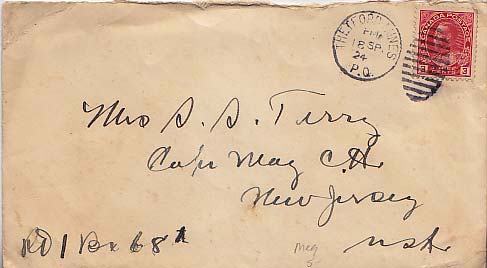 THETFORD MINES
PM
18 SP
24
P.Q.
CANADA POSTAGE
3 CENTS 3
Mrs S. S. Terry
Cape May C.H.
New Jersey
USA
RD 1 Bx 68A
Meg
5